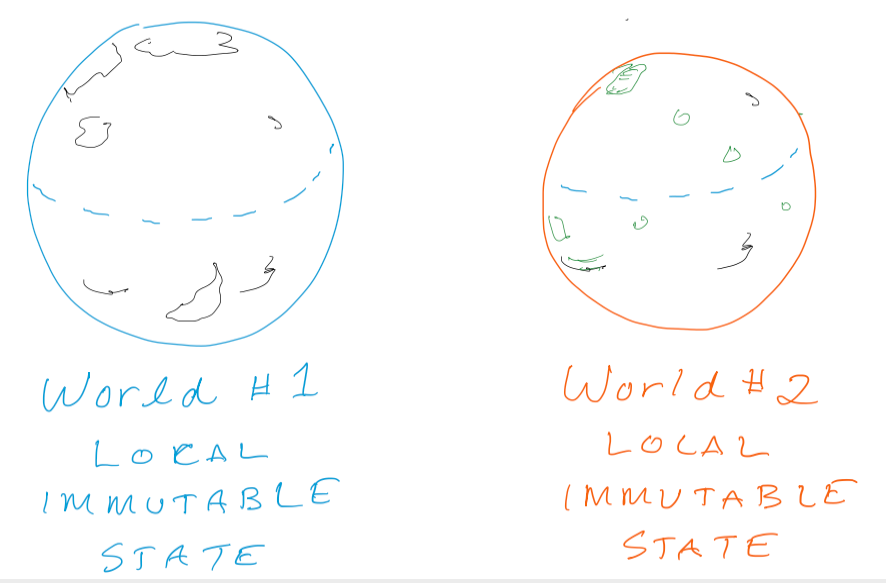 World #1
LOCAL
IMMUTABLE
STATE
World #2
LOCAL
IMMUTABLE
STATE